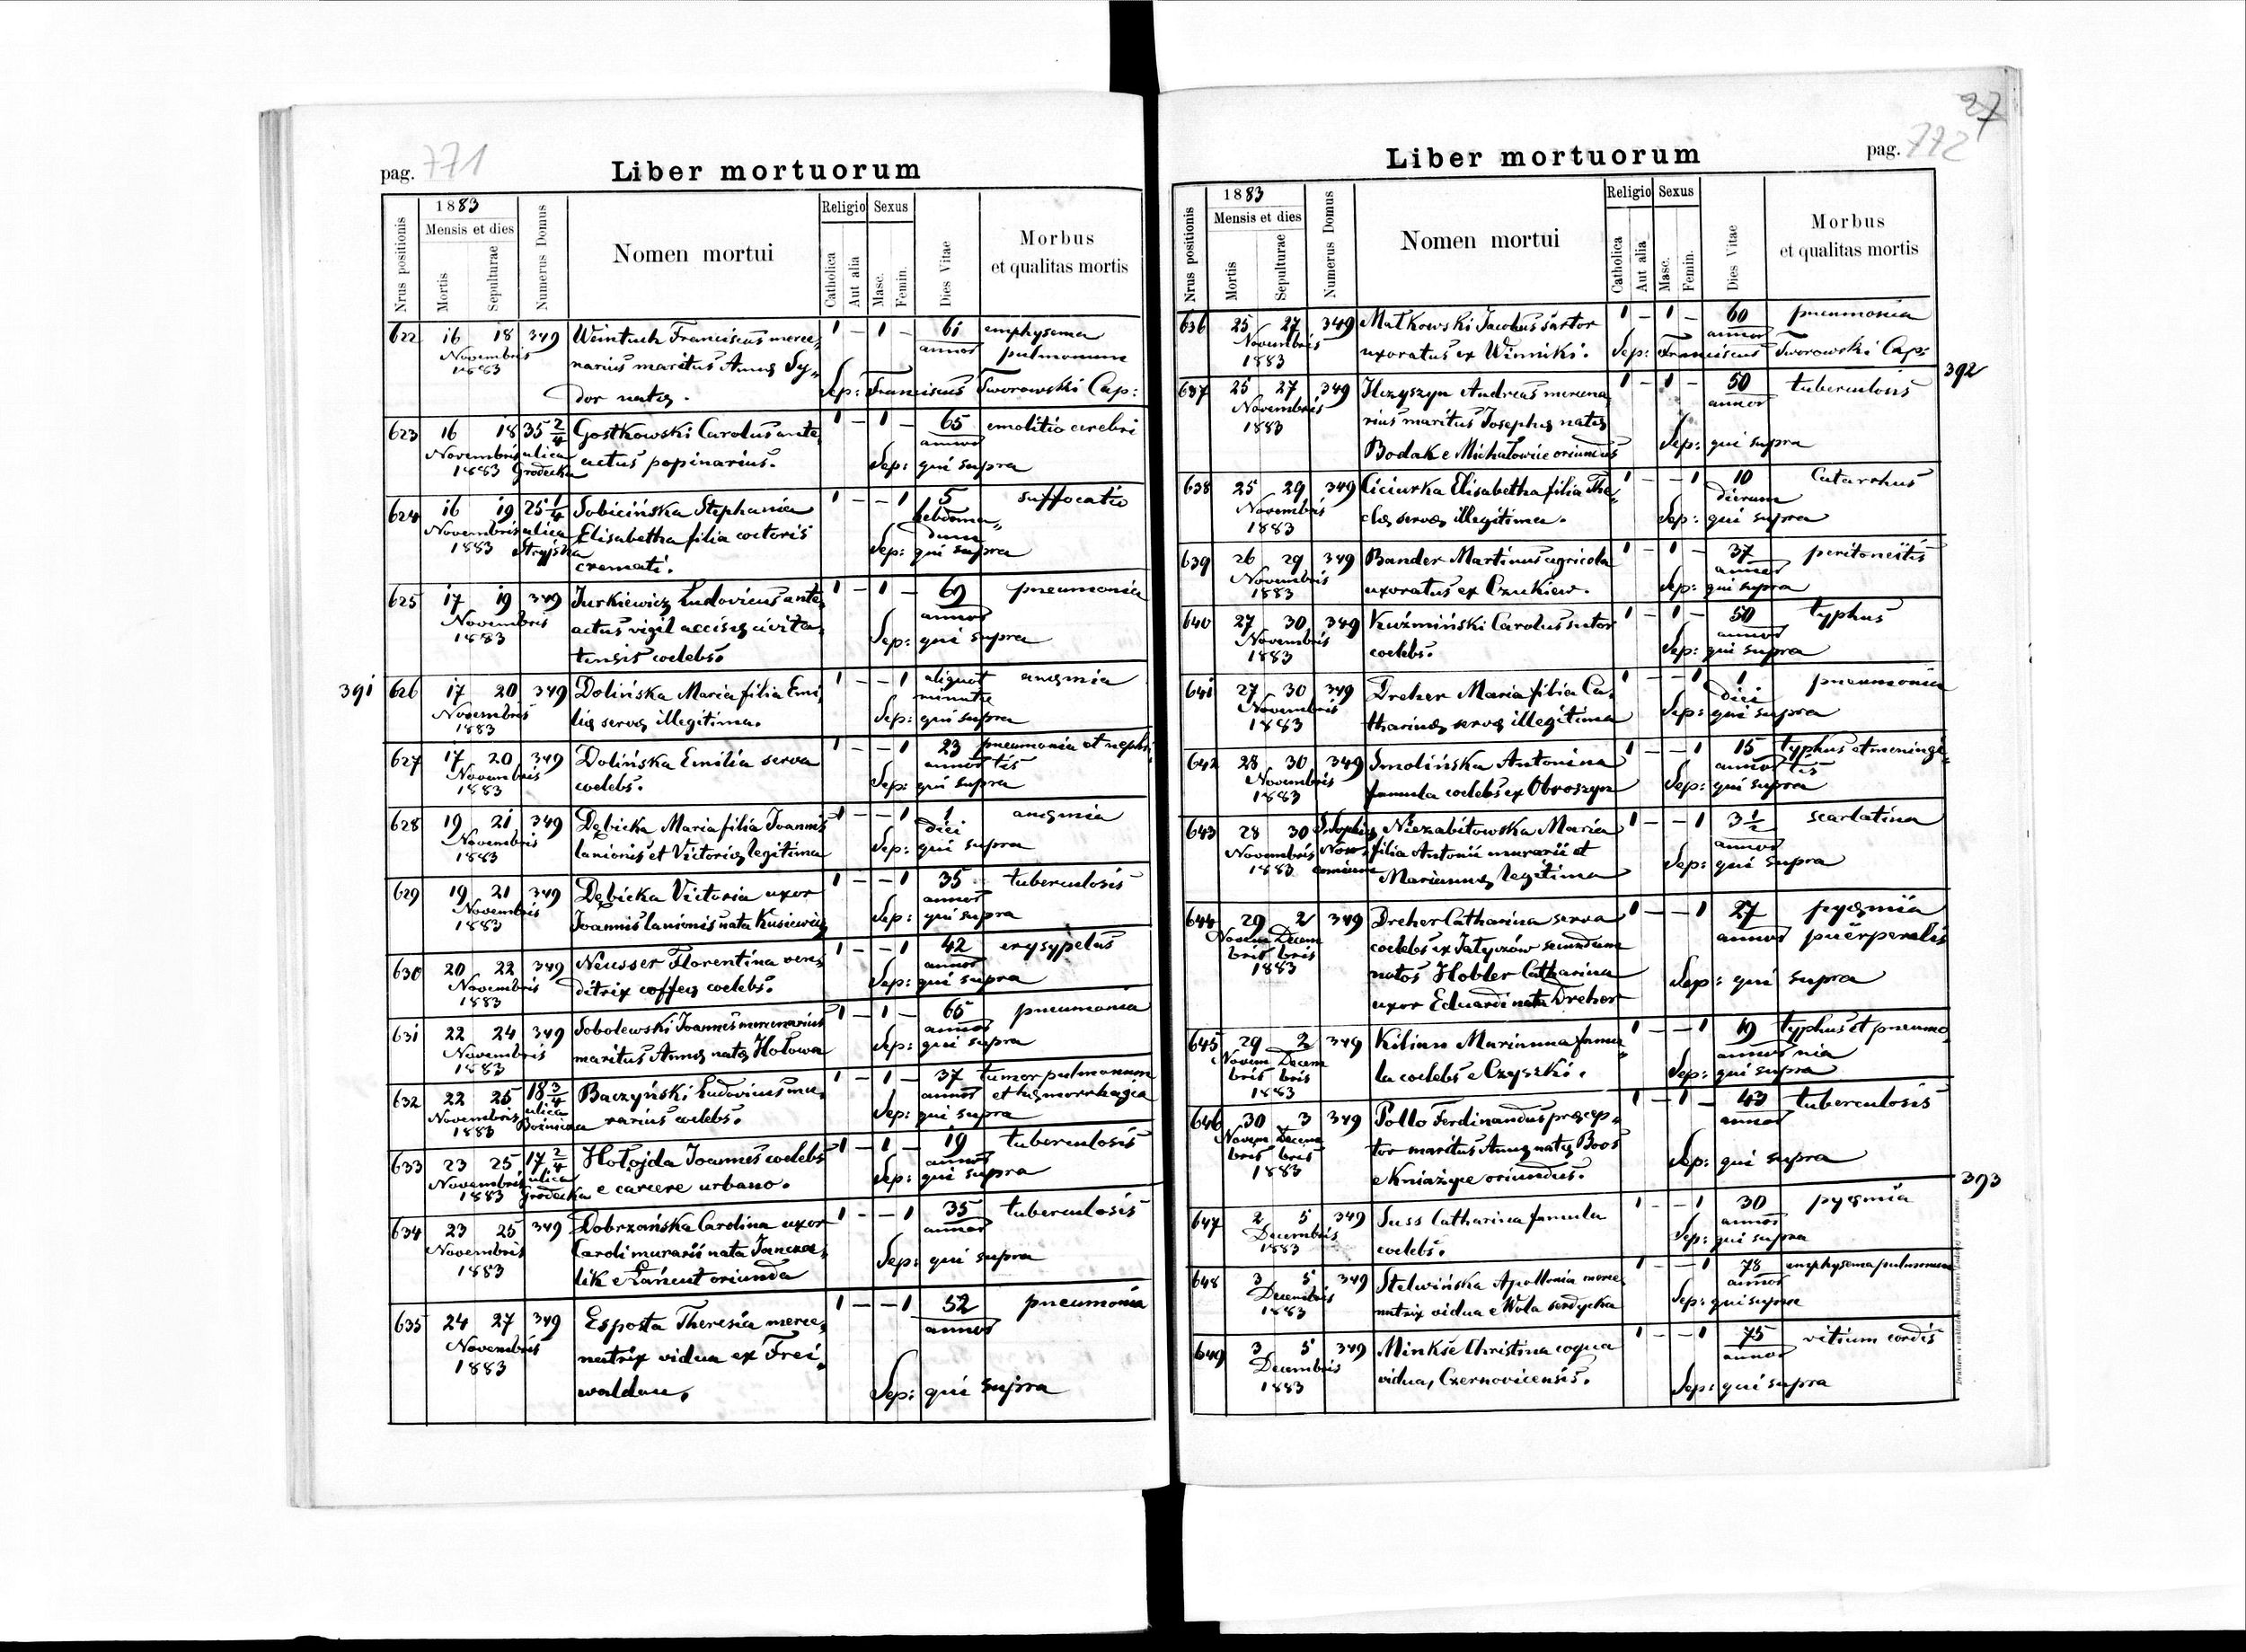 pag. 771
Liber mortuorum
Nrus positionis
1883
Mensis et dies
Mortis
Sepulturae
Numerus Domus
Nomen mortui
Religio
Catholica
Aut alia
Sexus
Masc.
Femin.
Dies Vitae
Morbus
et qualitas mortis
622 16 18 349 Weintuch Franciscus merce„ 1 – 1 – 61 emphysema
Novembris narius maritus Annę Sy„ annor pulmonum
1883 dor natę. Sep: Franciscus Tworowski Cap:
623 16 18 35 2/4 Gostkowski Carolus ante„ 1 – 1 – 65 emolitio cerebri
Novembris ulica actus popinarius. annor
1883 Grodecka Sep: qui supra
624 16 19 25 1/4 Sobicińska Stephania 1 – – 1 5 suffocatio
Novembris ulica Elisabetha filia coctoris hebdoma„
1883 Stryjska cremati. dum
Sep: qui supra
625 17 19 349 Jurkiewicz Ludovicus ante„ 1 – 1 – 69 pneumonia
Novembris actus vigil accisę civita„ annor
1883 tensis coelebs. Sep: qui supra
391 626 17 20 349 Dolińska Maria filia Emi„ 1 – – 1 aliquot anęmia
Novembris lię servę illegitima. minuta
1883 Sep: qui supra
627 17 20 349 Dolińska Emilia serva 1 – – 1 23 pneumonia et nephri„
Novembris coelebs. annor tis
1883 Sep: qui supra
628 19 21 349 Dębicka Maria filia Joannis 1 – – 1 1 anęmia
Novembris lanionis et Victorię legitima diei
1883 Sep: qui supra
629 19 21 349 Dębicka Victoria uxor 1 – – 1 35 tuberculosis
Novembris Joannis lanionis nata Kusiewicz annor
1883 Sep: qui supra
630 20 22 349 Neusser Florentina ven„ 1 – – 1 42 erysypelas
Novembris ditrix coffeę coelebs. annor
1883 Sep: qui supra
631 22 24 349 Sobolewski Joannes mercenarius 1 – 1 – 65 pneumonia
Novembris maritus Annę natę Hołowa annor
1883 Sep: qui supra
632 22 25 18 3/4 Baczyński Ludovicus mu„ 1 – 1 – 37 tumor pulmonum
Novembris ulica rarius coelebs. annor et hęmorrhagia
1883 Bóżnicza Sep: qui supra
633 23 25 17 2/4 Hołojda Joannes coelebs 1 – 1 – 19 tuberculosis
Novembris ulica e carcere urbano. annor
1883 Grodecka Sep: qui supra
634 23 25 349 Dobrzańska Carolina uxor 1 – – 1 35 tuberculosis
Novembris Caroli murarii nata Jancza„ annor
1883 lik e Łańcut oriunda Sep: qui supra
635 24 27 349 Esposta Theresia merce„ 1 – – 1 52 pneumonia
Novembris natrix vidua ex Frei„ annor
1883 waldau. Sep: qui supra
37
pag. 772
Liber mortuorum
Nrus positionis
1883
Mensis et dies
Mortis
Sepulturae
Numerus Domus
Nomen mortui
Religio
Catholica
Aut alia
Sexus
Masc.
Femin.
Dies Vitae
Morbus
et qualitas mortis
636 25 27 349 Małkowski Jacobus sartor 1 – 1 – 60 pneumonia
Novembris uxoratus ex Winniki. annor
1883 Sep: Franciscus Tworowski Cap:
392
637 25 27 349 Ilczyszyn Andreas mercena„ 1 – 1 – 50 tuberculosis
Novembris rius maritus Josephę natę annor
1883 Bodak e Michałowice oriundus Sep: qui supra
638 25 29 349 Ciciurka Elisabetha filia The„ 1 – – 1 10 Catarrhus
Novembris clę servę illegitima. dierum
1883 Sep: qui supra
639 26 29 349 Bander Martinus agricola 1 – 1 – 37 peritoneitis
Novembris uxoratus ex Czukiew. annor
1883 Sep: qui supra
640 27 30 349 Kuźmiński Carolus sutor 1 – 1 – 50 typhus
Novembris coelebs. annor
1883 Sep: qui supra
641 27 30 349 Dreher Maria filia Ca„ 1 – – 1 1 pneumonia
Novembris tharinę servę illegitima diei
1883 Sep: qui supra
642 28 30 349 Smolińska Antonina 1 – – 1 15 typhus et meningi„
Novembris famula coelebs ex Obroszyn annor tis
1883 Sep: qui supra
643 28 30 S. Sophię Niezabitowska Maria 1 – – 1 3 1/2 scarlatina
Novembris Noso„ filia Antonii murarii et annor
1883 comium Mariannę legitima Sep: qui supra
644 29 2 349 Dreher Catharina serva 1 – – 1 27 pyęmia
Novem Decem coelebs ex Jatyczów secundum annor puerperalis
bris bris natos Hobler Catharina
1883 uxor Eduardi nata Dreher Sep: qui supra
645 29 2 349 Kilian Marianna famu„ 1 – – 1 19 typhus et pneumo„
Novem Decem la coelebs e Czyszki. annor nia
bris bris Sep: qui supra
1883
646 30 3 349 Pollo Ferdinandus pręcep„ 1 – 1 – 43 tuberculosis
Novem Decem tor maritus Annę natę Boos annor
bris bris e Kniażyce oriundus. Sep: qui supra
1883
393
647 2 5 349 Suss Catharina famula 1 – – 1 30 pyęmia
Decembris coelebs. annor
1883 Sep: qui supra
648 3 5 349 Stelwińska Apollonia merce„ 1 – – 1 78 emphysema pulmonum
Decembris natrix vidua e Wola serdycka annor
1883 Sep: qui supra
649 3 5 349 Minkse Christina coqua 1 – – 1 75 vitium cordis
Decembris vidua, Czernovicensis. annor
1883 Sep: qui supra